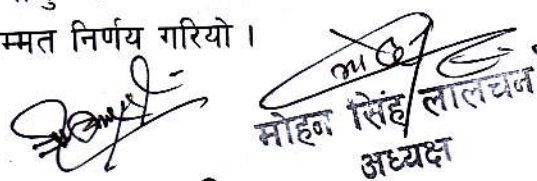 म्मत निर्णय गरियो ।
मोहन सिंह लालचन
अध्यक्ष